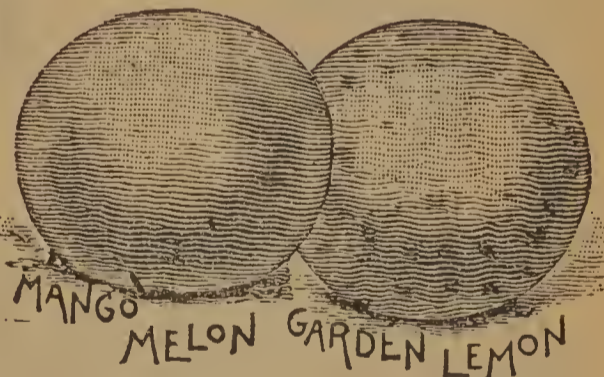 MANGO
MELON
GARDEN LEMON